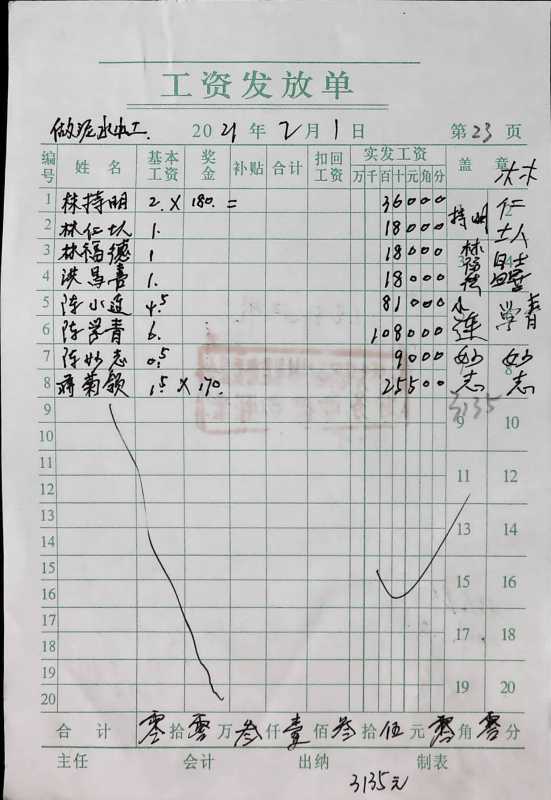 工资发放单
做泥水小工. 2021年2月1日 第23页
编号 姓名 基本工资 奖金 补贴 合计 扣回工资 实发工资 盖章
万千百十元角分
1 林持明 2. × 180. = 36000 持明
2 林仁 1. 18000 仁
3 林福德 1 18000 林福德
4 洪昌喜 1. 18000 昌喜
5 陈小莲 4.5 81000 小莲
6 陈学青 6. 108000 学青
7 陈妙志 0.5 9000 妙志
8 蒋菊领 1.5 × 170. 25500 妙志
3135
9 9 10
10
11 11 12
12
13 13 14
14
15 15 16
16
17 17 18
18
19 19 20
20
合计 零拾零万叁仟壹佰叁拾伍元零角零分
主任 会计 出纳 制表
3135元